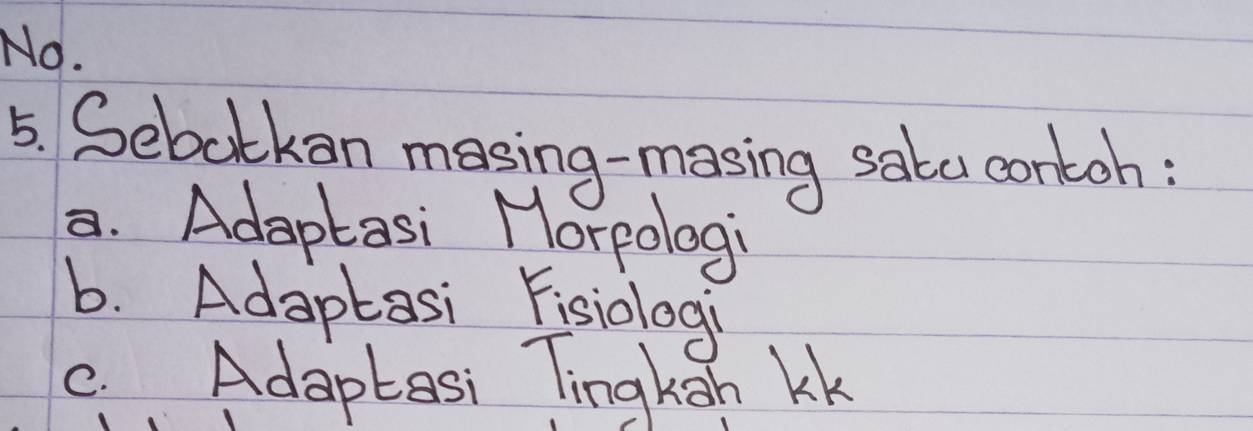 No.
5. Sebutkan masing-masing satu contoh:
a. Adaptasi Morfologi
b. Adaptasi Fisiologi
c. Adaptasi Tingkah kk